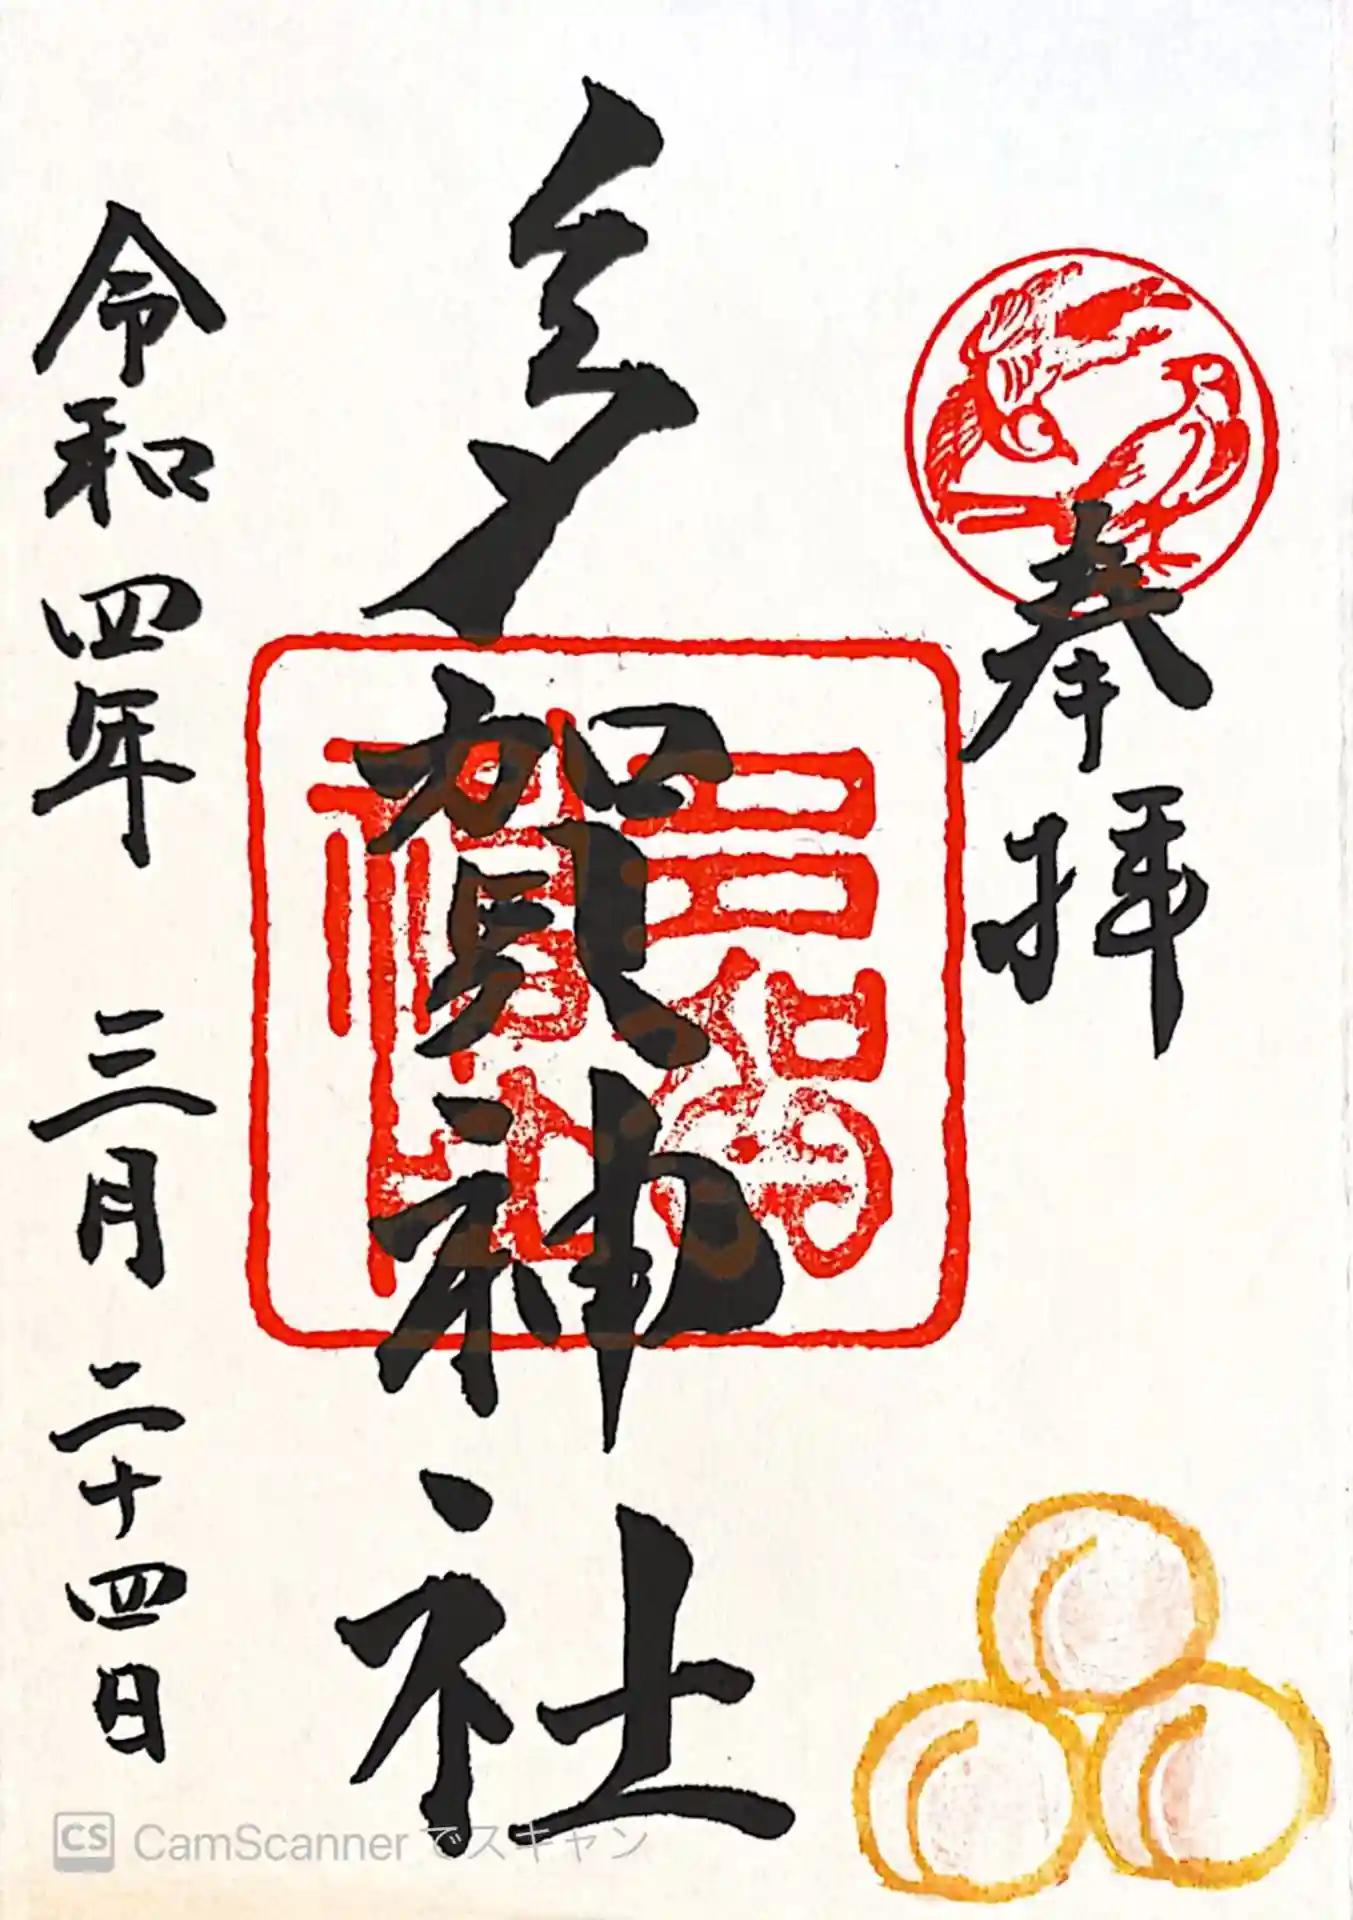 奉拝
多賀神社
令和四年 三月 二十四日
CS CamScanner でスキャン